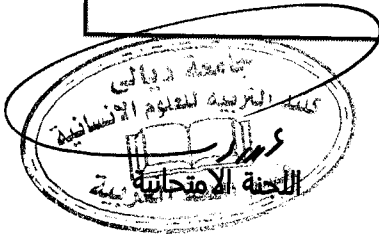 جامعة ديالى
كلية التربية للعلوم الانسانية
اللجنة الامتحانية